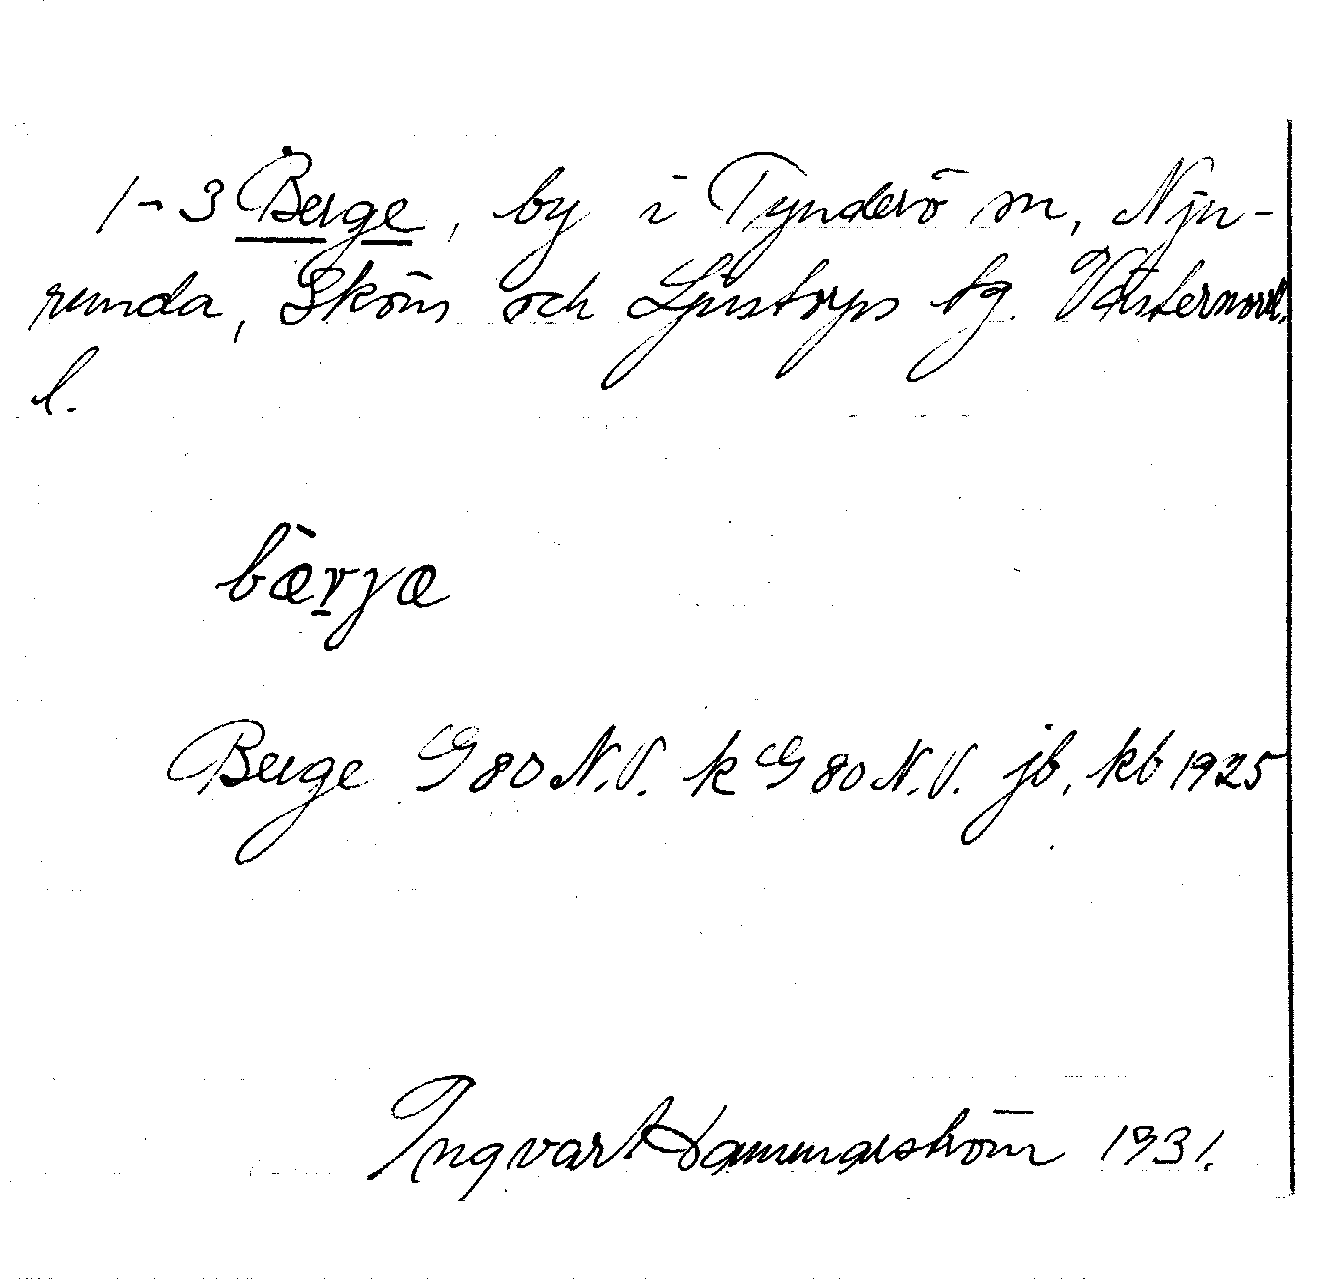 1-3 Berge, by i Tynderö sn, Nju-
runda, Sköns och Ljustorps tg. Västernorrl.
l.
bærjæ
Berge G 80 N.V. k G 80 N.V. jb, kb 1925
Ingvar Hammarström 1931.